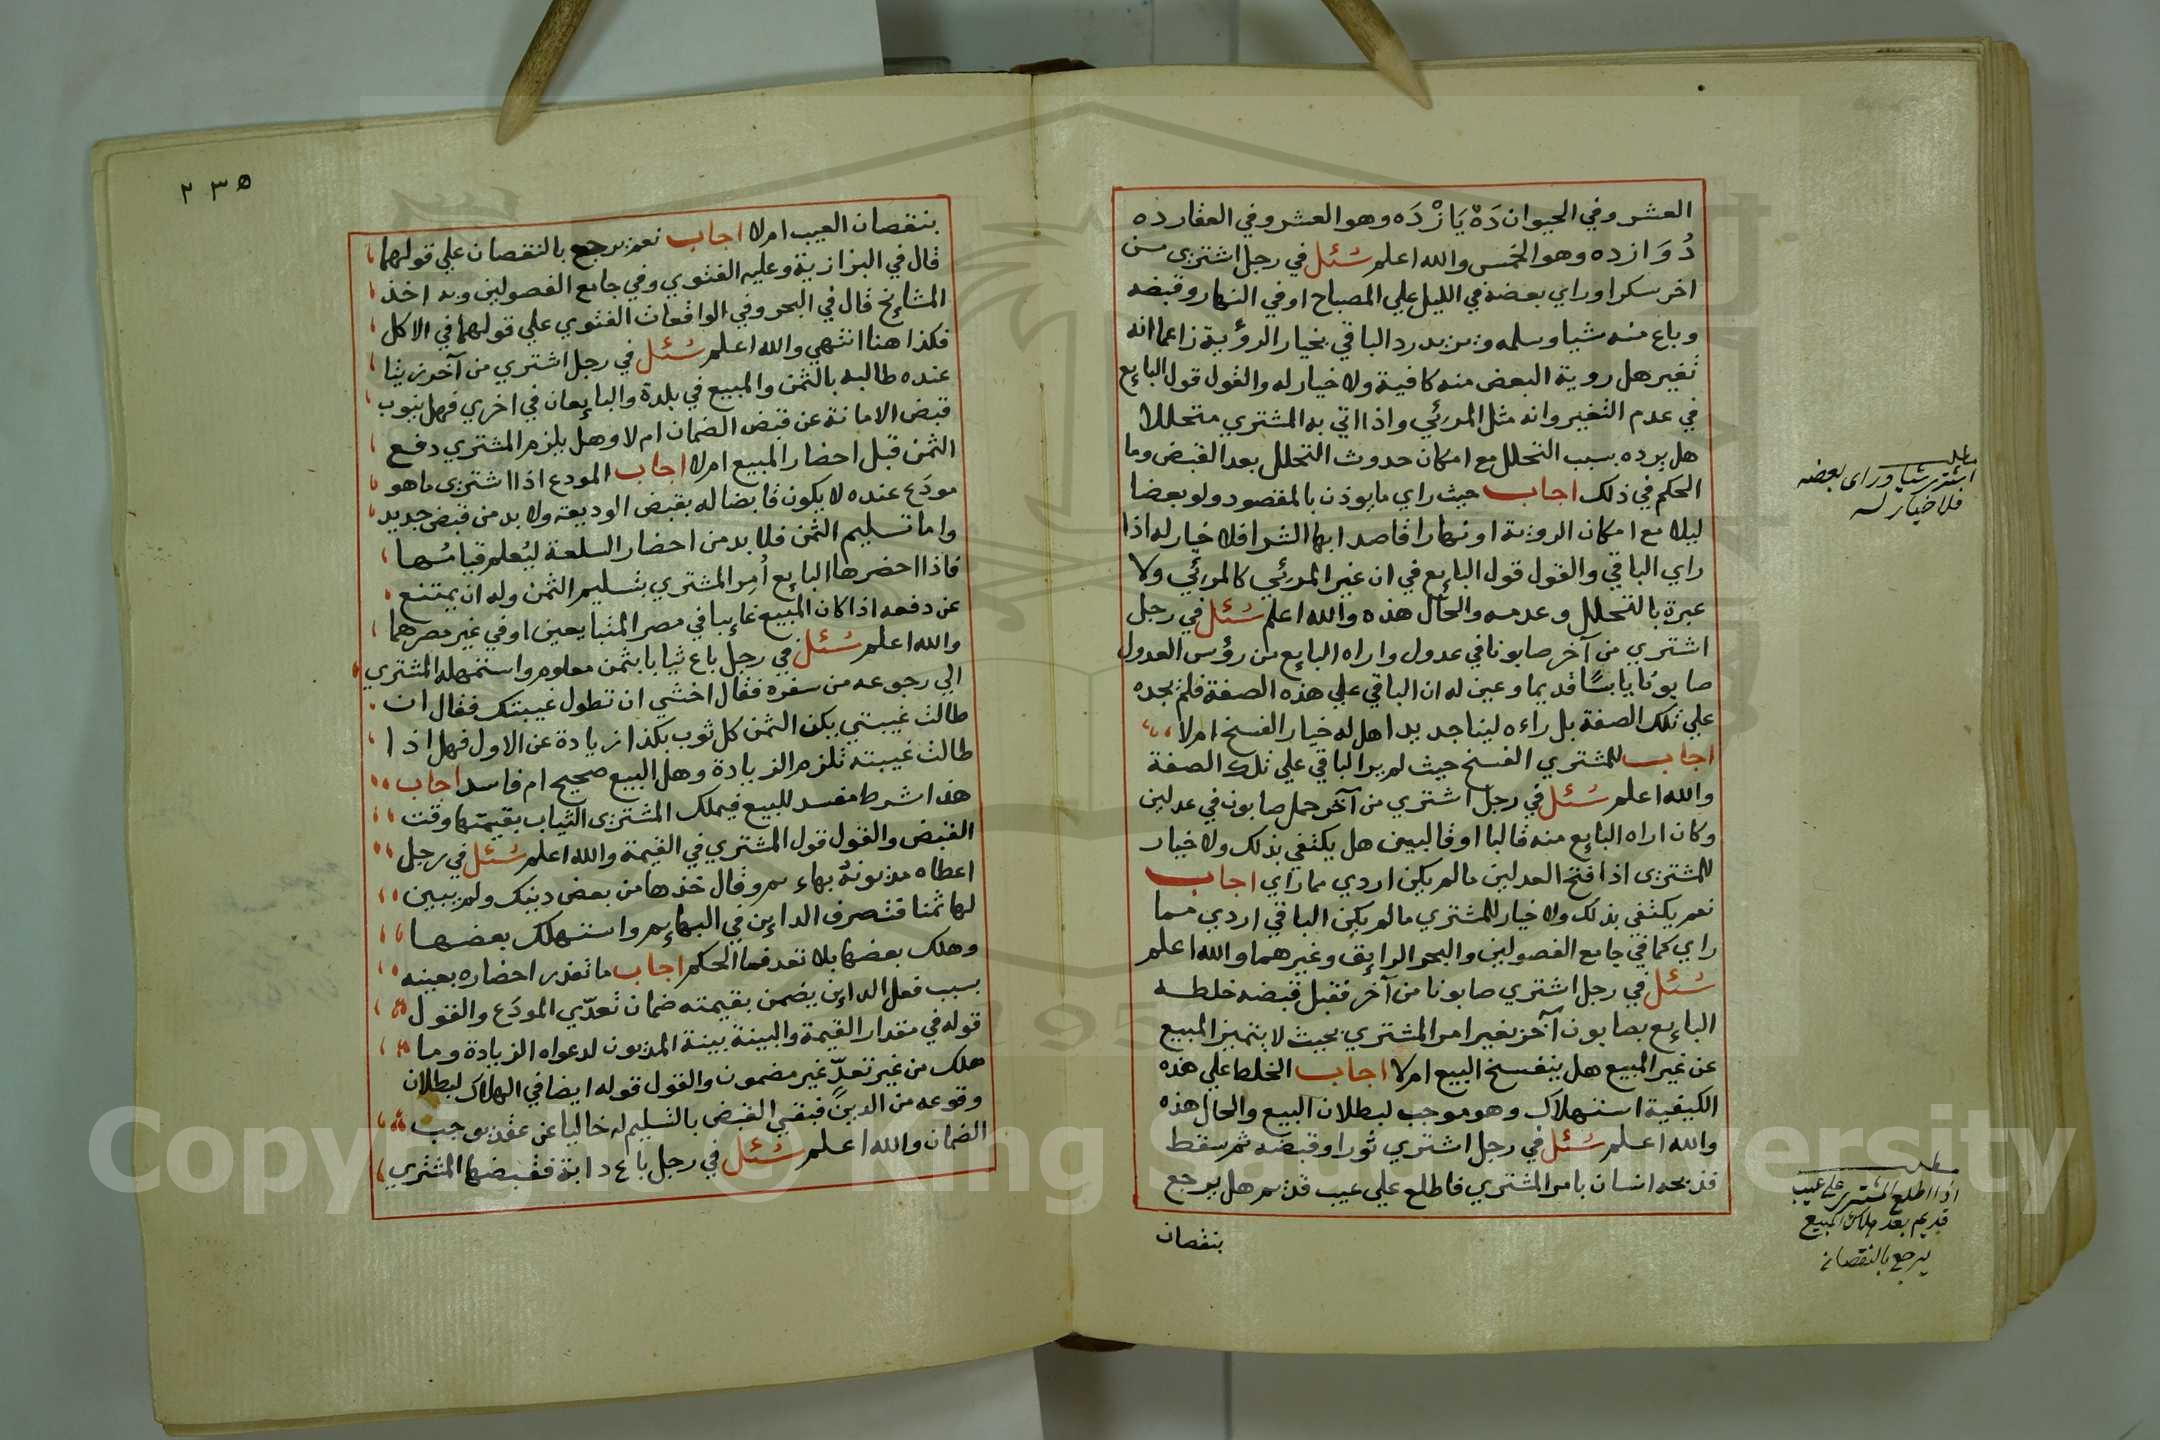 العشر وفي الحيوان دَهْ يَازْدَه وهو العشر وفي العقار ده
دُوَازده وهو الخمس والله اعلم سُئل في رجل اشترى من
اخر سكرا وراي بعضه في الليل علي المصباح او في النهار وقبضه
وباع منه شيا وسلمه ويريد رد الباقي بخيار الرؤية زاعما انه
تغير هل روية البعض منه كافية ولا خيار له والقول قول البايع
في عدم التغير وانه مثل المرئي واذا اتي به المشتري متحللا
هل يرده بسبب التحلل مع امكان حدوث التحلل بعد القبض وما
الحكم في ذلك اجاب حيث راي ما يوذن بالمقصود ولو بعضا
ليلا مع امكان الروية او نهارا قاصدا بها الشرا فلا خيار له اذا
راي الباقي والقول قول البايع في ان غير المرئي كالمرئي ولا
عبرة بالتحلل وعدمه والحال هذه والله اعلم سُئل في رجل
اشتري من آخر صابونا في عدول واراه البايع من رؤس العدول
صابونا يابسًا قديما وعين له ان الباقي علي هذه الصفة فلم يجده
علي تلك الصفة بل راءه لينا جديدا هل له خيار الفسخ ام لا
اجاب للمشتري الفسخ حيث لم ير الباقي علي تلك الصفة
والله اعلم سُئل في رجل اشتري من آخر حمل صابون في عدلين
وكان اراه البايع منه قالبا او قالبين هل يكتفي بذلك ولا خيار
للمشترى اذا فتح العدلين ما لم يكن اردي مما راي اجاب
نعم يكتفي بذلك ولا خيار للمشتري ما لم يكن الباقي اردي مما
راي كما في جامع الفصولين والبحر الرايق وغيرهما والله اعلم
سُئل في رجل اشتري صابونا من آخر فقبل قبضه خلطه
البايع بصابون آخر بغير امر المشتري بحيث لا يتميز المبيع
عن غير المبيع هل ينفسخ البيع ام لا اجاب الخلط علي هذه
الكيفية استهلاك وهو موجب لبطلان البيع والحال هذه
والله اعلم سُئل في رجل اشتري ثورا وقبضه ثم سقط
فذبحه انسان بامر المشتري فاطلع علي عيب قديم هل يرجع
بنقصان
مطلب
اشترى شيا وراى بعضه
فلا خيار له
مطلب
اذا اطلع المشترى على عيب
قديم بعد هلاك المبيع
يرجع بالنقصان
٢٣٥
بنقصان العيب ام لا اجاب نعم يرجع بالنقصان علي قولهما
قال في البزازية وعليه الفتوي وفي جامع الفصولين وبه اخذ
المشايخ قال في البحر وفي الواقعات الفتوي علي قولهما في الاكل
فكذا هنا انتهي والله اعلم سُئل في رجل اشتري من آخر زيتا
عنده طالبه بالثمن والمبيع في بلدة والبايعان في اخري فهل ينوب
قبض الامانة عن قبض الضمان ام لا وهل يلزم المشتري دفع
الثمن قبل احضار المبيع ام لا اجاب المودع اذا اشترى ما هو
مودَع عنده لا يكون قابضا له بقبض الوديعة ولا بد من قبض جديد
واما تسليم الثمن فلا بد من احضار السلعة ليُعلم قيامُها
فاذا احضرها البايع أُمِر المشتري بتسليم الثمن وله ان يمتنع
عن دفعه اذا كان المبيع غايبا في مصر المتبايعين او في غير مصرهما
والله اعلم سُئل في رجل باع ثيابا بثمن معلوم واستمهله المشتري
الي رجوعه من سفره فقال اخشي ان تطول غيبتك فقال ان
طالت غيبتي يكن الثمن كل ثوب بكذا زيادة عن الاول فهل اذا
طالت غيبته تلزم الزيادة وهل البيع صحيح ام فاسد اجاب
هذا شرط مفسد للبيع فيملك المشترى الثياب بقيمتها وقت
القبض والقول قول المشتري في القيمة والله اعلم سُئل في رجل
اعطاه مديونهُ بهايم وقال خذها من بعض دينك ولم يبين
لها ثمنا فتصرف الداين في البهايم واستهلك بعضها
وهلك بعضها بلا تعد فما الحكم اجاب ما تعذر احضاره بعينه
بسبب فعل الداين يضمن بقيمته ضمان تعدّي المودَع والقول
قوله في مقدار القيمة والبينة بينة المديون لدعواه الزيادة وما
هلك من غير تعدٍّ غير مضمون والقول قوله ايضا في الهلاك لبطلان
وقوعه من الدين فبقي القبض بالتسليم له خاليا عن عقد يوجب
الضمان والله اعلم سُئل في رجل باع دابة فقبضها المشتري